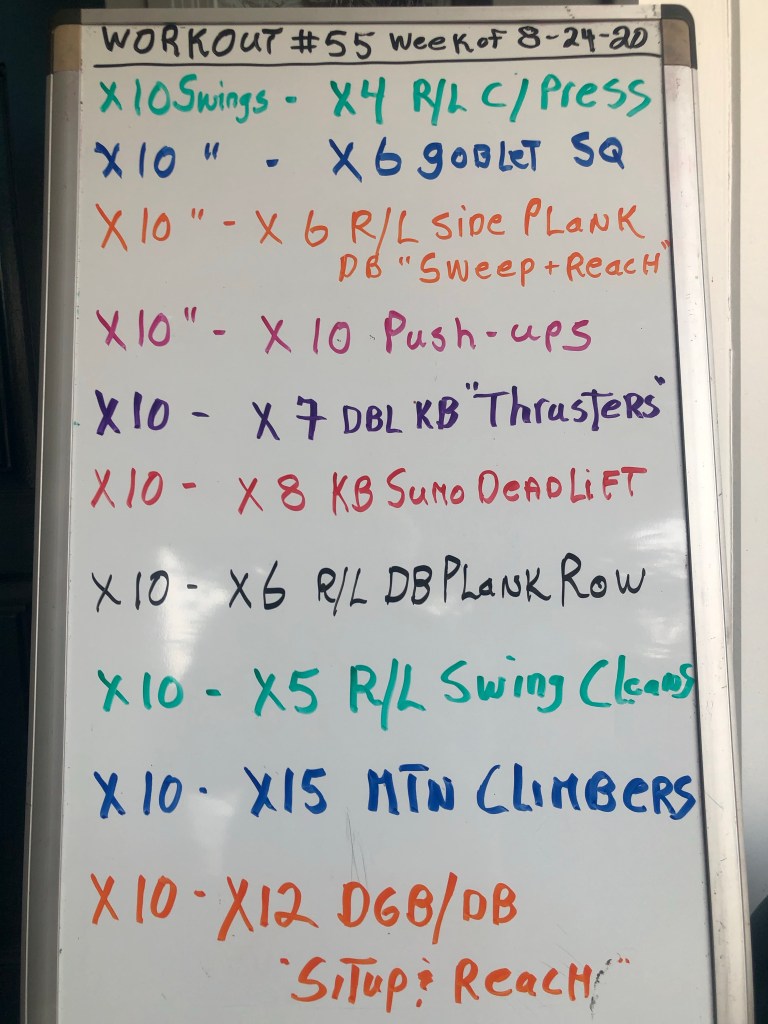 WORKOUT #55 Week of 8-24-20
X10 Swings - X4 R/L C/Press
X10 " - X6 goblet SQ
X10 " - X 6 R/L Side PLANK
DB "Sweep + Reach"
X10 " - X 10 Push-ups
X10 - X 7 DBL KB "Thrusters"
X10 - X 8 KB Sumo DeadLiFT
X10 - X6 R/L DB PLANK Row
X10 - X5 R/L Swing Cleans
X10 - X15 MTN CLiMBERS
X10 - X12 DGB/DB
"SiTup & Reach"